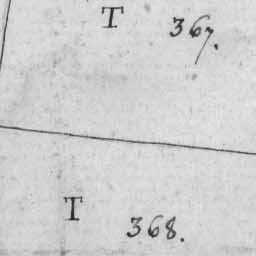 T 367.
T 368.